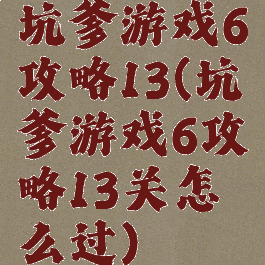 坑爹游戏6
攻略13(坑
爹游戏6攻
略13关怎
么过)